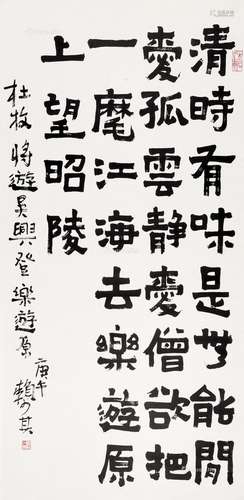 清時有味是無能閒
愛孤雲靜愛僧欲把
一麾江海去樂遊原
上望昭陵
杜牧將遊吳興登樂遊原
庚午
賴少其